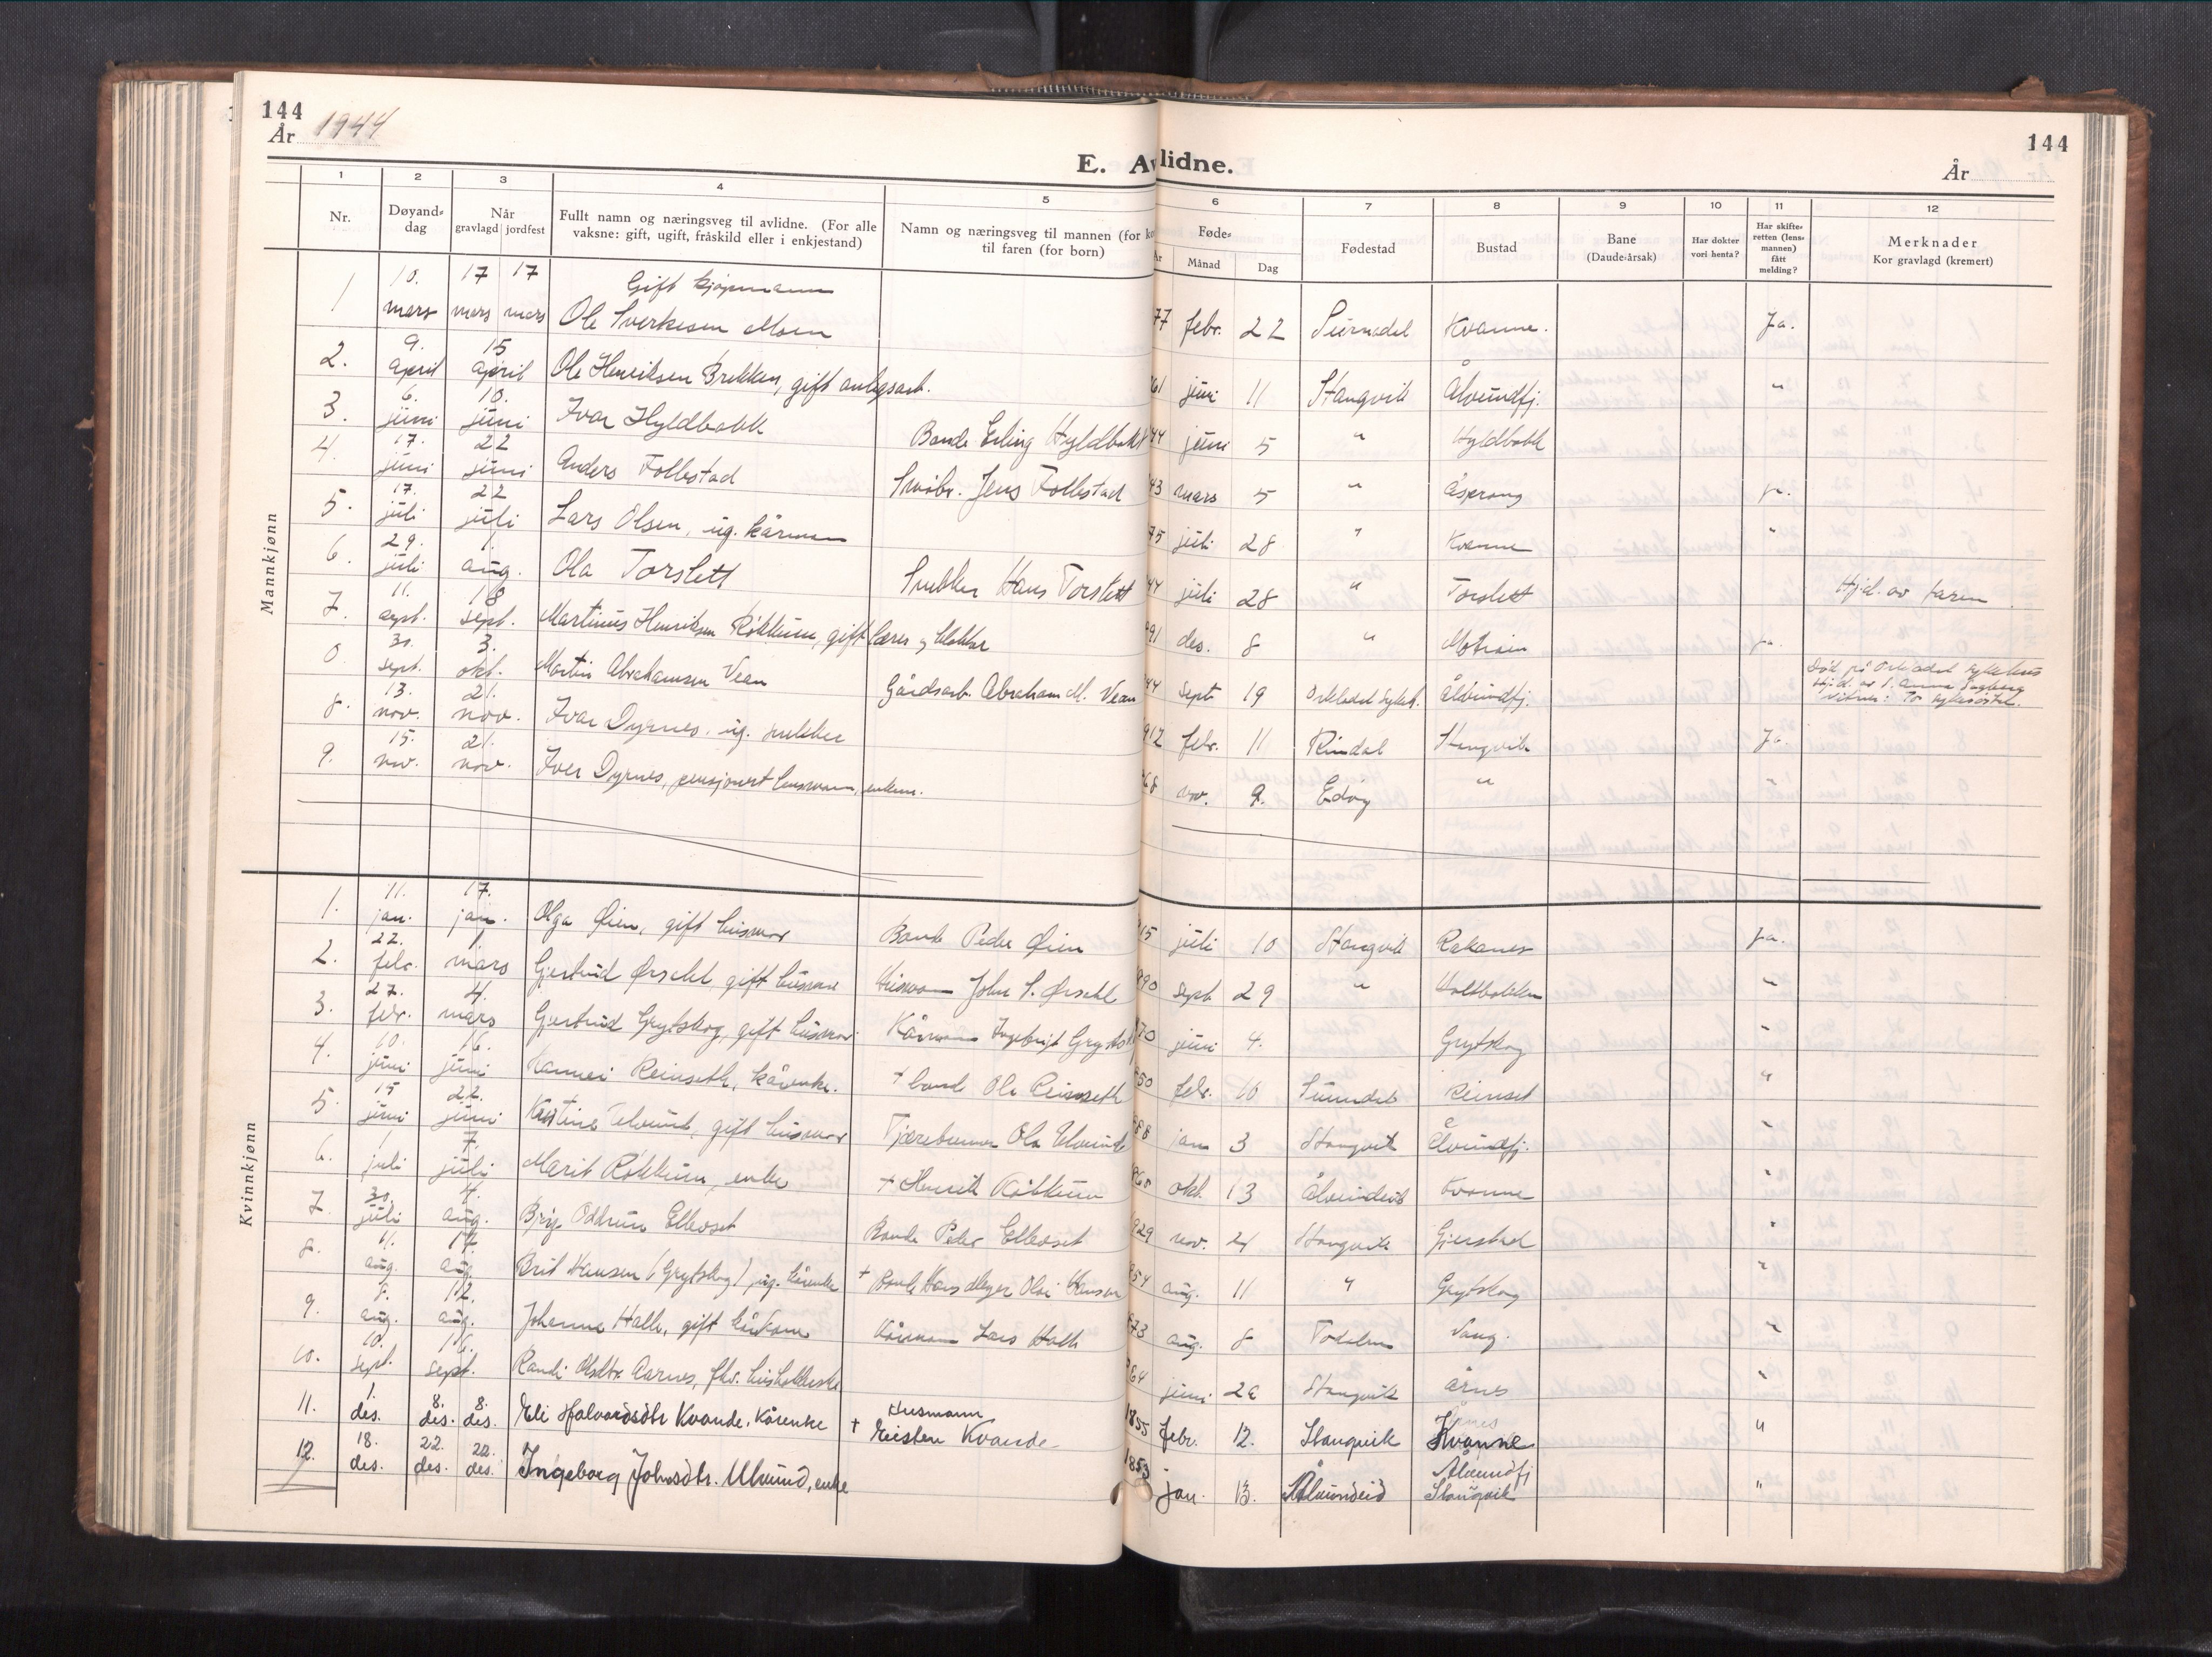 144
År 1944
E. Avlidne.
144
År
1 2 3 4 5 6 7 8 9 10 11 12
Nr.
Døyand-dag
Når gravlagd jordfest
Fullt namn og næringsveg til avlidne. (For alle vaksne: gift, ugift, fråskild eller i enkjestand)
Namn og næringsveg til mannen (for ko
til faren (for born)
Føde-
År Månad Dag
Fødestad
Bustad
Bane (Daude-årsak)
Har dokter vori henta?
Har skifte-retten (lens-mannen) fått melding?
Merknader
Kor gravlagd (kremert)
Mannkjønn
1 10. mars 17 mars 17 mars Gift kjøpmann Ole Sverkesen Moen 77 febr. 22 Surnadal Kvanne. Ja.
2. 9. april 15 april Ole Henriksen Brekken, gift anlegsarb. 61 juni 11 Stangvik Ålvundfj. "
3. 6. juni 10. juni Ivar Hyldbakk Bonde Erling Hyldbakk 44 juni 5 " Hyldbakk
4. 17. juni 22 juni Anders Follestad Småbr. Jens Follestad 43 mars 5 " Åsprong ja.
5. 17. juli 22 juli Lars Olsen, ug. kårmann 75 juli 28 " Kvanne "
6. 29. juli 1. aug. Ola Torslett Snekker Hans Torslett 44 juli 28 " Torslett Hjd. av faren
7. 11. sept. 18 sept. Martinus Henriksen Røkkum, gift lærer og klokker 91 des. 8 " Motrøen ja.
0. 30. sept. 3. okt. Martin Abrahamsen Vean Gårdsarb. Abraham M. Vean 44 sept 19 Orkladal sykeh. Ålvundfj. Død på Orkdal sykehus
Hjd. av s. Anna Ingberg
Vitner: To sykesøstre.
8. 13. nov. 21. nov. Ivar Dyrnes, ug. snekker 912 febr. 11 Rindal Stangvik Ja.
9. 15. nov. 21. nov. Iver Dyrnes, pensjonert lensmann, enkem. 68 nov. 9. Edøy "
Kvinnkjønn
1. 11. jan. 17. jan. Olga Øien, gift husmor Bonde Peder Øien 15 juli 10 Stangvik Rakanes ja.
2. 22. febr. 1 mars Gjertrud Ørsahl, gift husmor Husmann John S. Ørsahl 890 sept 29 " Holtbakken "
3. 27. febr. 4. mars Gjertrud Grytskog, gift husmor Kårmann Ingebrigt Grytskog 870 juni 4. Grytskog "
4. 10. juni 16. juni Reinseth, kårenke. + bonde Ole Reinseth 850 febr. 10 Sunndal Reinset "
5. 15 juni 22. juni Kristine Ulvund, gift husmor Ola Ulvund 888 jan 3 Stangvik Ålvundfj. "
6. 1 juli 7. juli Marit Røkkum, enke + Henrik Røkkum okt. 13 Ålvundeid Kvanne "
7. 30. juli 4. aug. Oddrun Ellevset Bonde Peder Ellevset 929 nov. 24 Stangvik Gjerstad "
8. 11. aug. 17. aug. Brit Hansen (Grytskog), kårenke + 854 aug. 11 " Grytskog "
9. 8. aug. 12. aug. Johanne Halle, gift kårkone Kårmann Lars Halle 873 aug. 8 Todalen Vaag. "
10. 10. sept. 16. sept. Randi Olsdtr. Aarnes, fhv. husholderske 864 juni 20 Stangvik Årnes "
11. 1. des. 8. des. 8. des. Eli Halvardsdtr Kvande, Kårenke + Husmann Kristen Kvande 1855 febr. 12. Stangvik Kvanne "
12. 18. des. 22. des. 22. des. Ingeborg Johnsdtr. Ulvund, enke 1853 jan. 13. Ålvundeid Ålvundfj Stangvik "